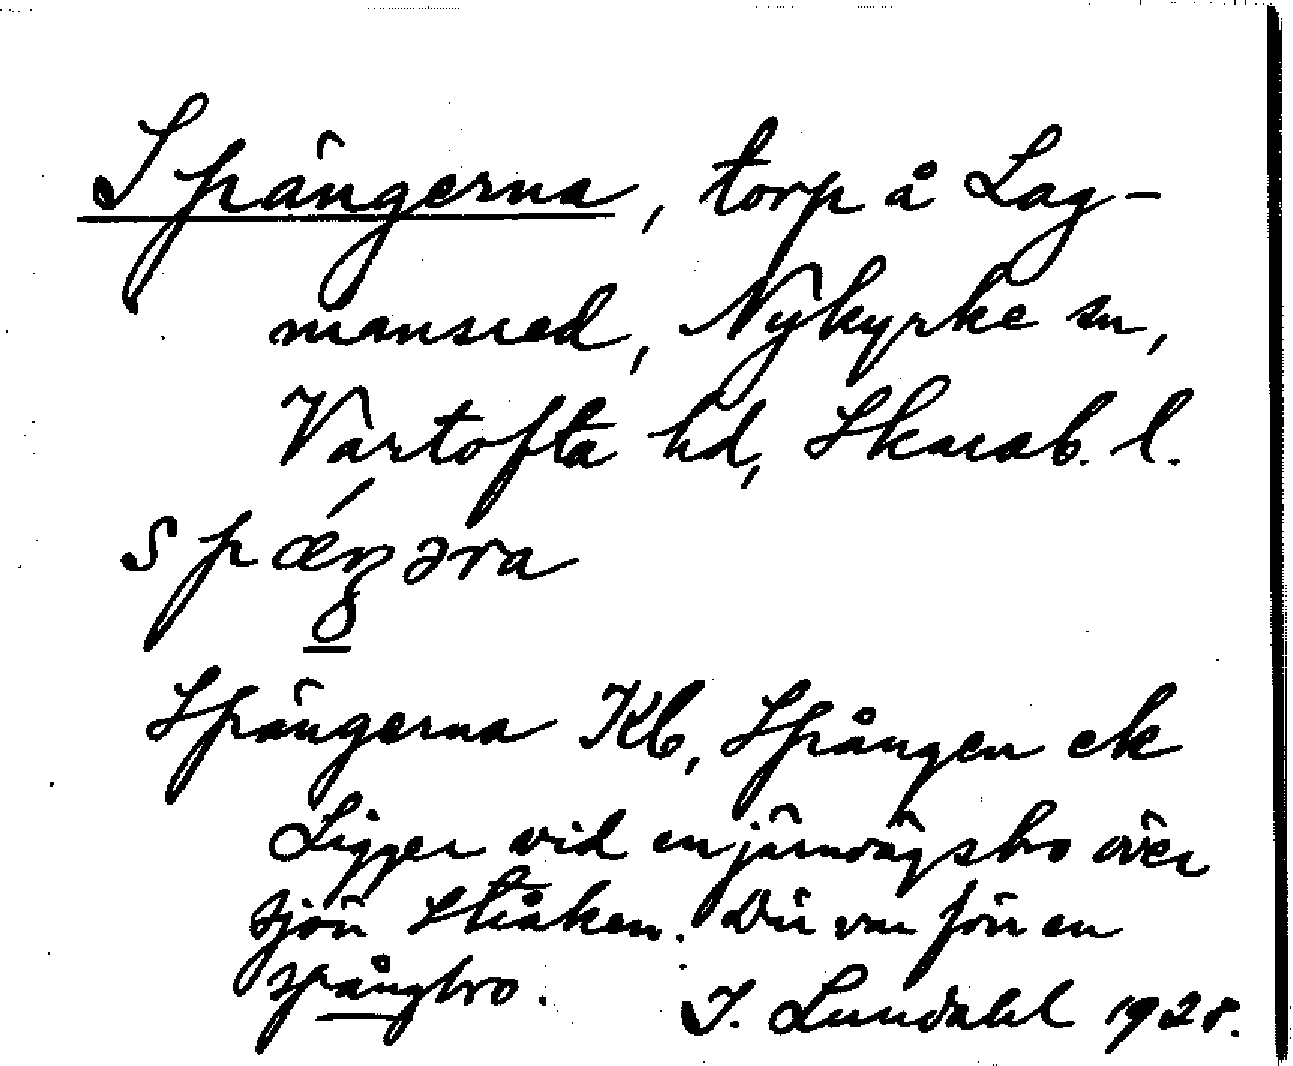 Spängerna, torp å Lag-
mansred, Nykyrke sn,
Vartofta hd, Skarab. l.
spǽŋəra
Spängerna Kb, Spången ek
Ligger vid en järnvägsbro över
sjön Stråken. Där var förr en
spångbro.
I. Lundahl 1928.